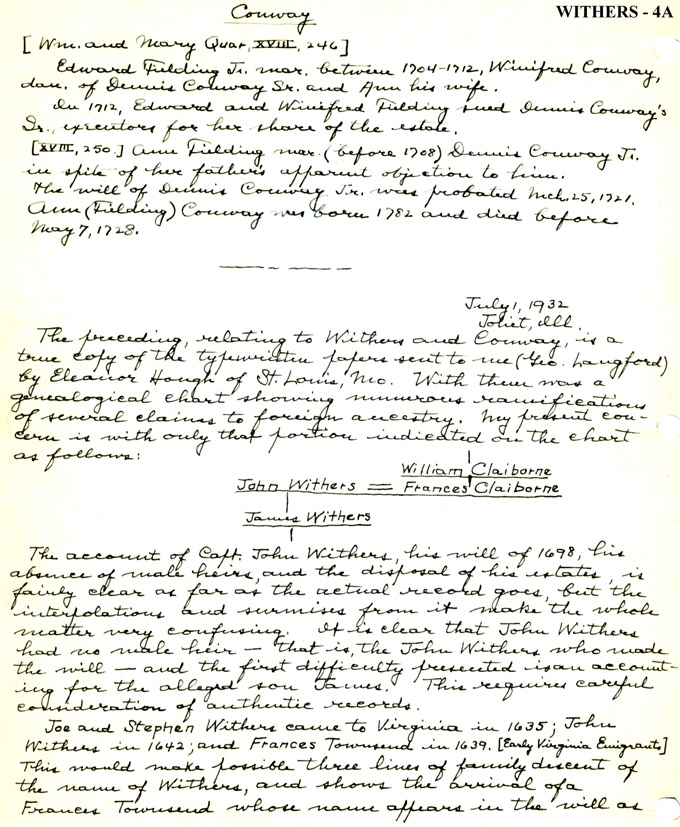 Conway
WITHERS - 4A
[Wm. and Mary Quar, XVIII, 246]
Edward Fielding Jr. mar. between 1704-1712, Winifred Conway,
dau. of Dennis Conway Sr. and Ann his wife.
In 1712, Edward and Winifred Fielding sued Dennis Conway's
Sr., executors for her share of the estate.
[XVIII, 250.] Ann Fielding mar. (before 1708) Dennis Conway Jr.
in spite of her father's apparent objection to him.
The will of Dennis Conway Jr. was probated Mch. 25, 1721.
Ann (Fielding) Conway was born 1782 and died before
May 7, 1728.
July 1, 1932
Joliet, Ill.
The preceding, relating to Withers and Conway, is a
true copy of the typewritten papers sent to me (Geo. Langford)
by Eleanor Hough of St. Louis, Mo. With them was a
genealogical chart showing numerous ramifications
of several claims to foreign ancestry. My present con-
cern is with only that portion indicated on the chart
as follows:
William Claiborne
John Withers = Frances Claiborne
James Withers
The account of Capt. John Withers, his will of 1698, his
absence of male heirs, and the disposal of his estates, is
fairly clear as far as the actual record goes, but the
interpolations and surmises from it make the whole
matter very confusing. It is clear that John Withers
had no male heir — that is, the John Withers who made
the will — and the first difficulty presented is an account-
ing for the alleged son James. This requires careful
consideration of authentic records.
Joe and Stephen Withers came to Virginia in 1635; John
Withers in 1642; and Frances Townsend in 1639. [Early Virginia Emigrants]
This would make possible three lines of family descent of
the name of Withers, and shows the arrival of a
Frances Townsend whose name appears in the will as